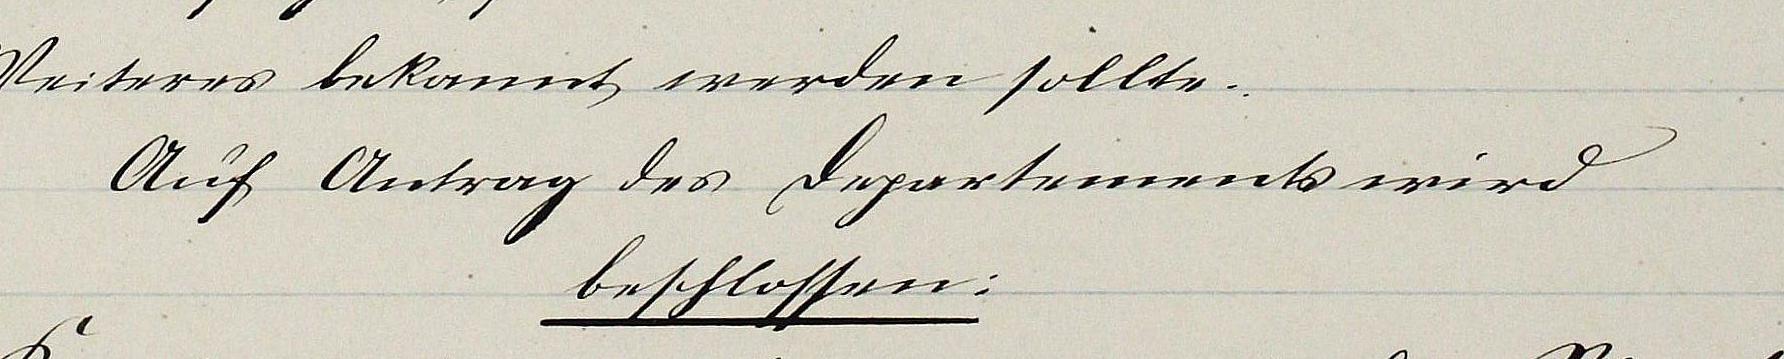 Weiteres bekannt werden sollte.
Auf Antrag des Departements wird
beschlossen: